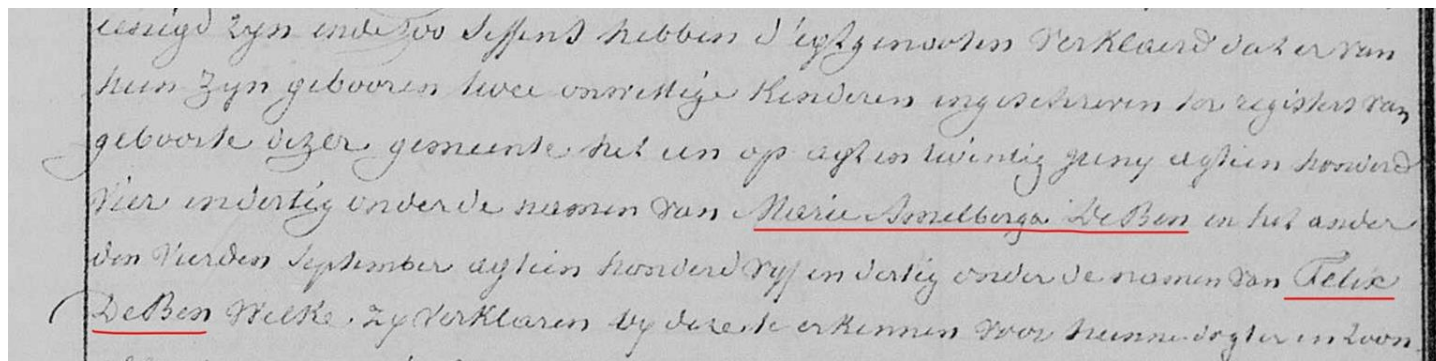 zyn ende zoo seffens hebben d'egtgenooten verklaerd dat er van
hun zyn gebooren twee onwettige kinderen ingeschreven ter registers van
geboorte dezer gemeente het een op agt en twintig juny agtien honderd
vier en dertig onder de namen van Marie Amelberga De Ben en het ander
den vierden september agtien honderd vyf en dertig onder de namen van Felix
De Ben welke zy verklaren by deze te erkennen voor hunne dogter en zoon